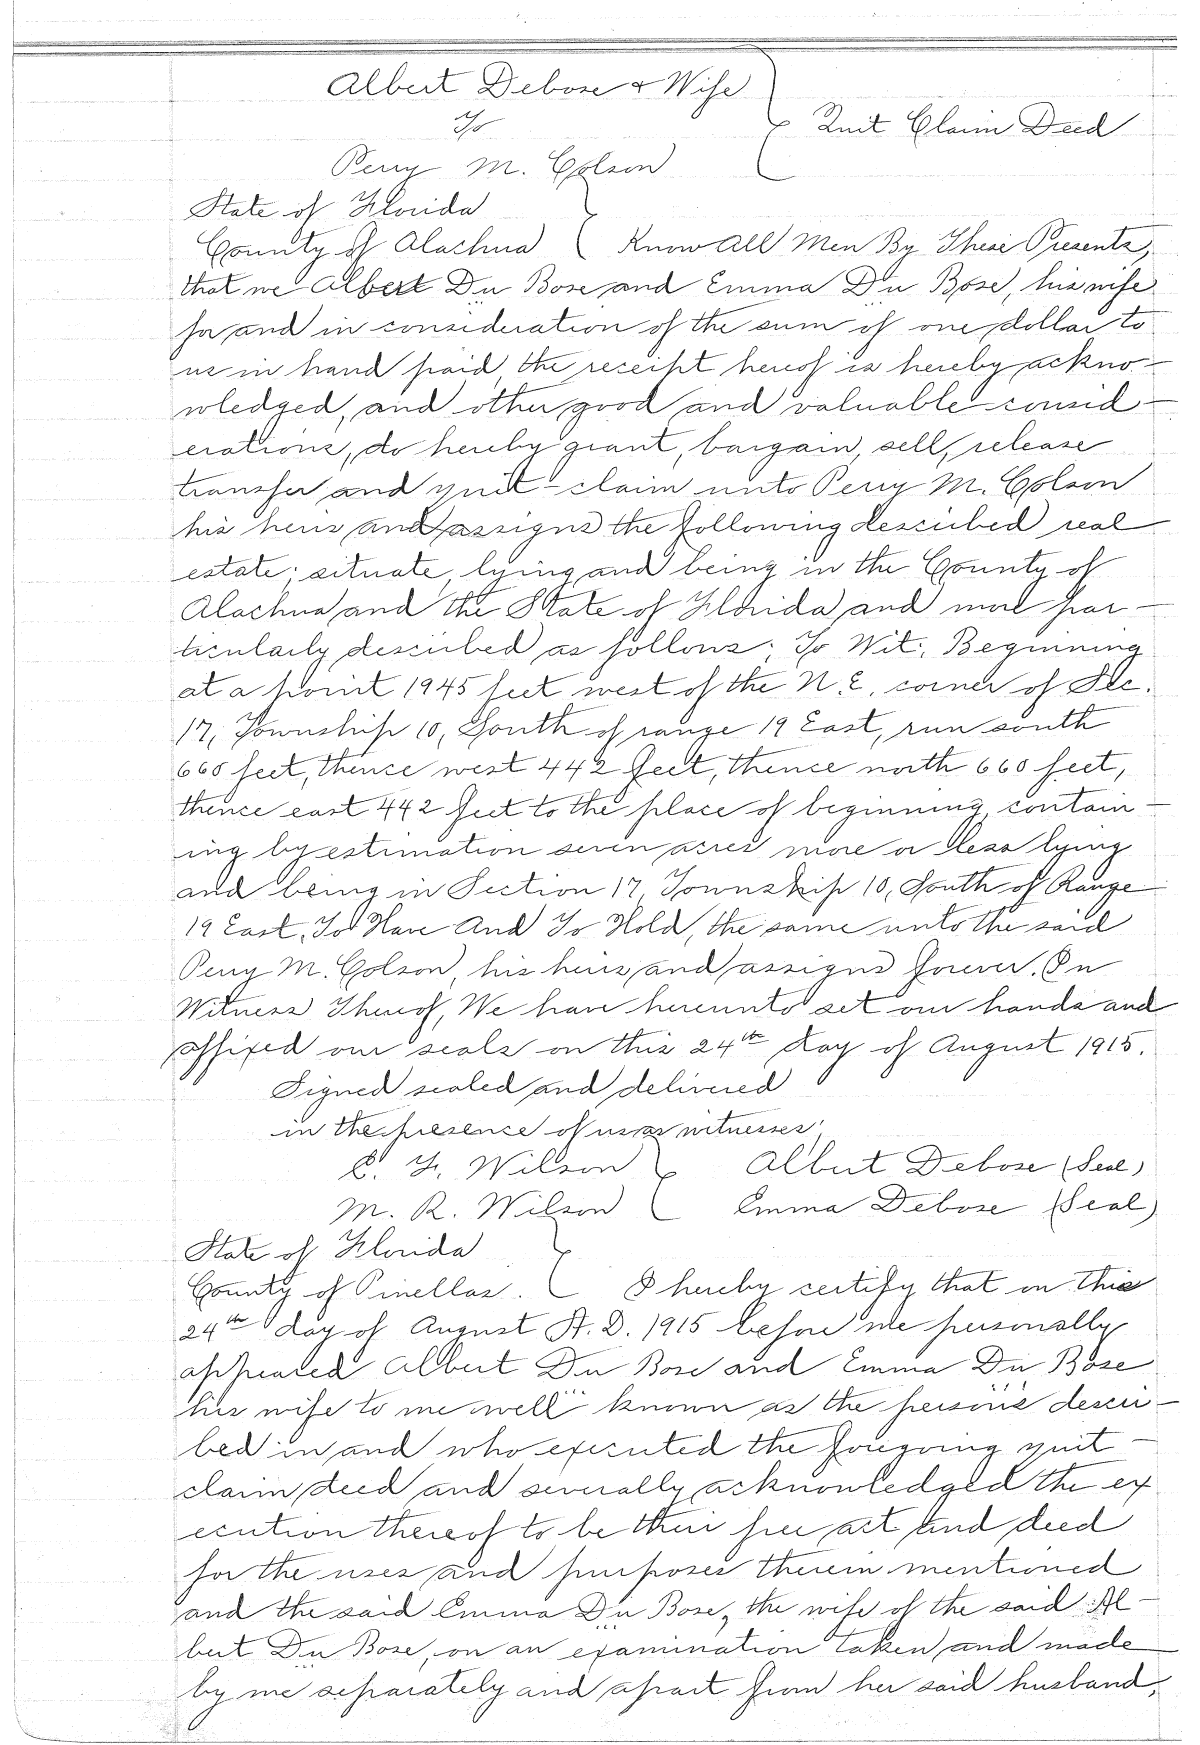 Albert Debose & Wife
To
Quit Claim Deed
Perry M. Colson
State of Florida
County of Alachua Know All Men By These Presents,
that we Albert Du Bose and Emma Du Bose, his wife
for and in consideration of the sum of one dollar to
us in hand paid, the receipt hereof is hereby ackno-
wledged, and other good and valuable consid-
erations, do hereby grant, bargain, sell, release
transfer and quit-claim unto Perry M. Colson
his heirs and assigns the following described real
estate; situate, lying and being in the County of
Alachua and the State of Florida and more par-
ticularly described as follows; To Wit; Beginning
at a point 1945 feet west of the N.E. corner of Sec.
17, Township 10, South of range 19 East, run south
660 feet, thence west 442 feet, thence north 660 feet,
thence east 442 feet to the place of beginning, contain-
ing by estimation seven acres more or less lying
and being in Section 17, Township 10, South of Range
19 East, To Have And To Hold, the same unto the said
Perry M. Colson, his heirs and assigns forever. In
Witness Thereof, We have hereunto set our hands and
affixed our seals on this 24th day of August 1915.
Signed sealed and delivered
in the presence of us as witnesses;
C. F. Wilson Albert Debose (Seal)
M. R. Wilson Emma Debose (Seal)
State of Florida
County of Pinellas. I hereby certify that on this
24th day of August A. D. 1915 before me personally
appeared Albert Du Bose and Emma Du Bose
his wife to me well known as the persons descri-
bed in and who executed the foregoing quit-
claim deed and severally acknowledged the ex
ecution thereof to be their free act and deed
for the uses and purposes therein mentioned
and the said Emma Du Bose, the wife of the said Al-
bert Du Bose, on an examination taken and made
by me separately and apart from her said husband,